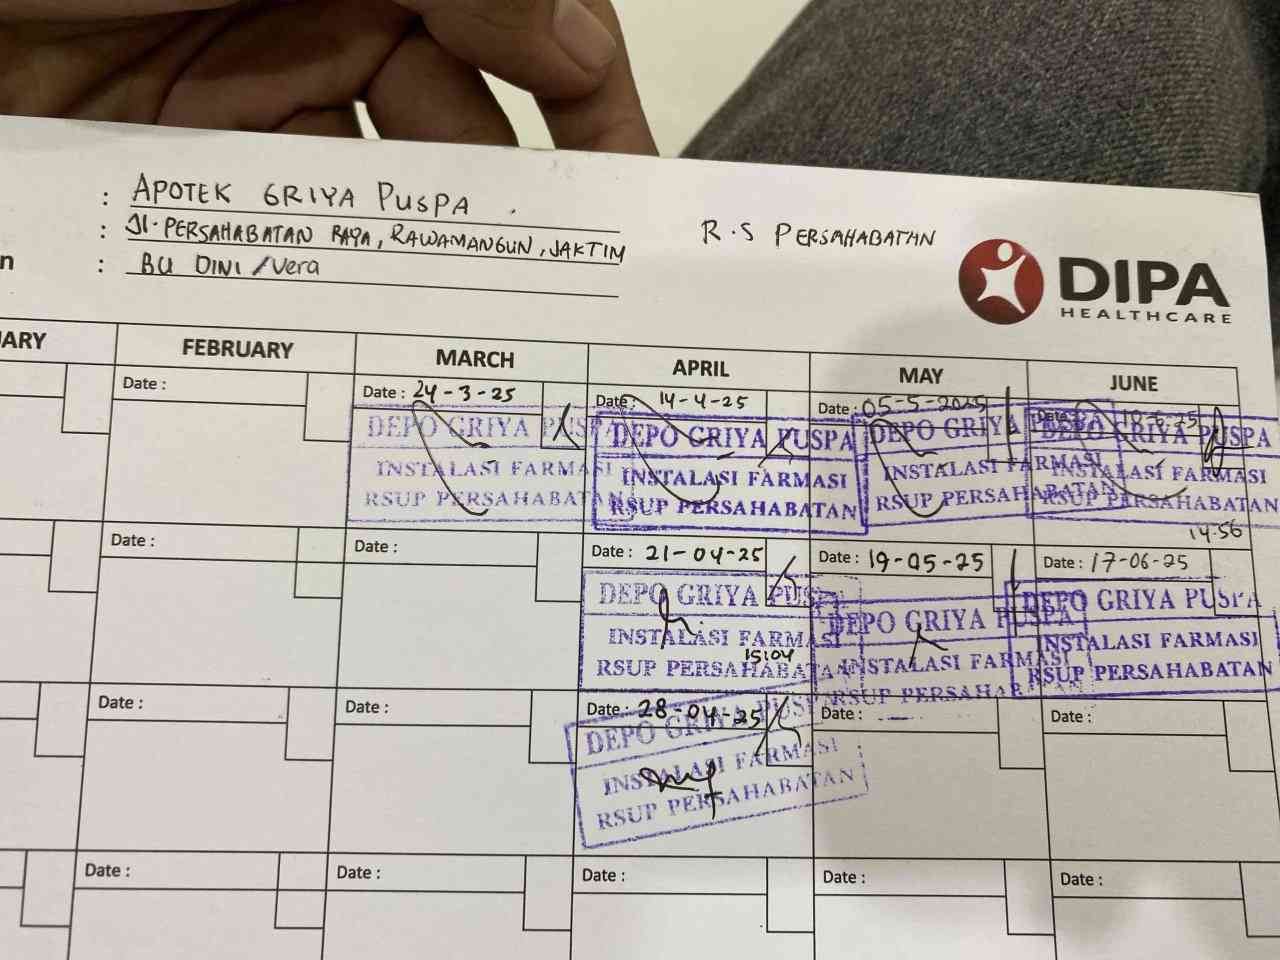 : APOTEK GRIYA PUSPA .
: Jl. PERSAHABATAN RAYA, RAWAMANGUN, JAKTIM
n : BU DINI / Vera
R.S PERSAHABATAN
DIPA
HEALTHCARE
ARY FEBRUARY MARCH APRIL MAY JUNE
Date : Date : 24-3-25 Date : 14-4-25 Date : 05-5-2025 Date : 10-6-25
DEPO GRIYA PUSPA DEPO GRIYA PUSPA DEPO GRIYA PUSPA DEPO GRIYA PUSPA
INSTALASI FARMASI INSTALASI FARMASI INSTALASI FARMASI INSTALASI FARMASI
RSUP PERSAHABATAN RSUP PERSAHABATAN RSUP PERSAHABATAN RSUP PERSAHABATAN
14.56
Date : Date : Date : 21-04-25 Date : 19-05-25 Date : 17-06-25
DEPO GRIYA PUSPA DEPO GRIYA PUSPA DEPO GRIYA PUSPA
INSTALASI FARMASI INSTALASI FARMASI INSTALASI FARMASI
15:04
RSUP PERSAHABATAN RSUP PERSAHABATAN RSUP PERSAHABATAN
Date : Date : Date : 28-04-25 Date : Date :
DEPO GRIYA PUSPA
INSTALASI FARMASI
RSUP PERSAHABATAN
Date : Date : Date : Date : Date :